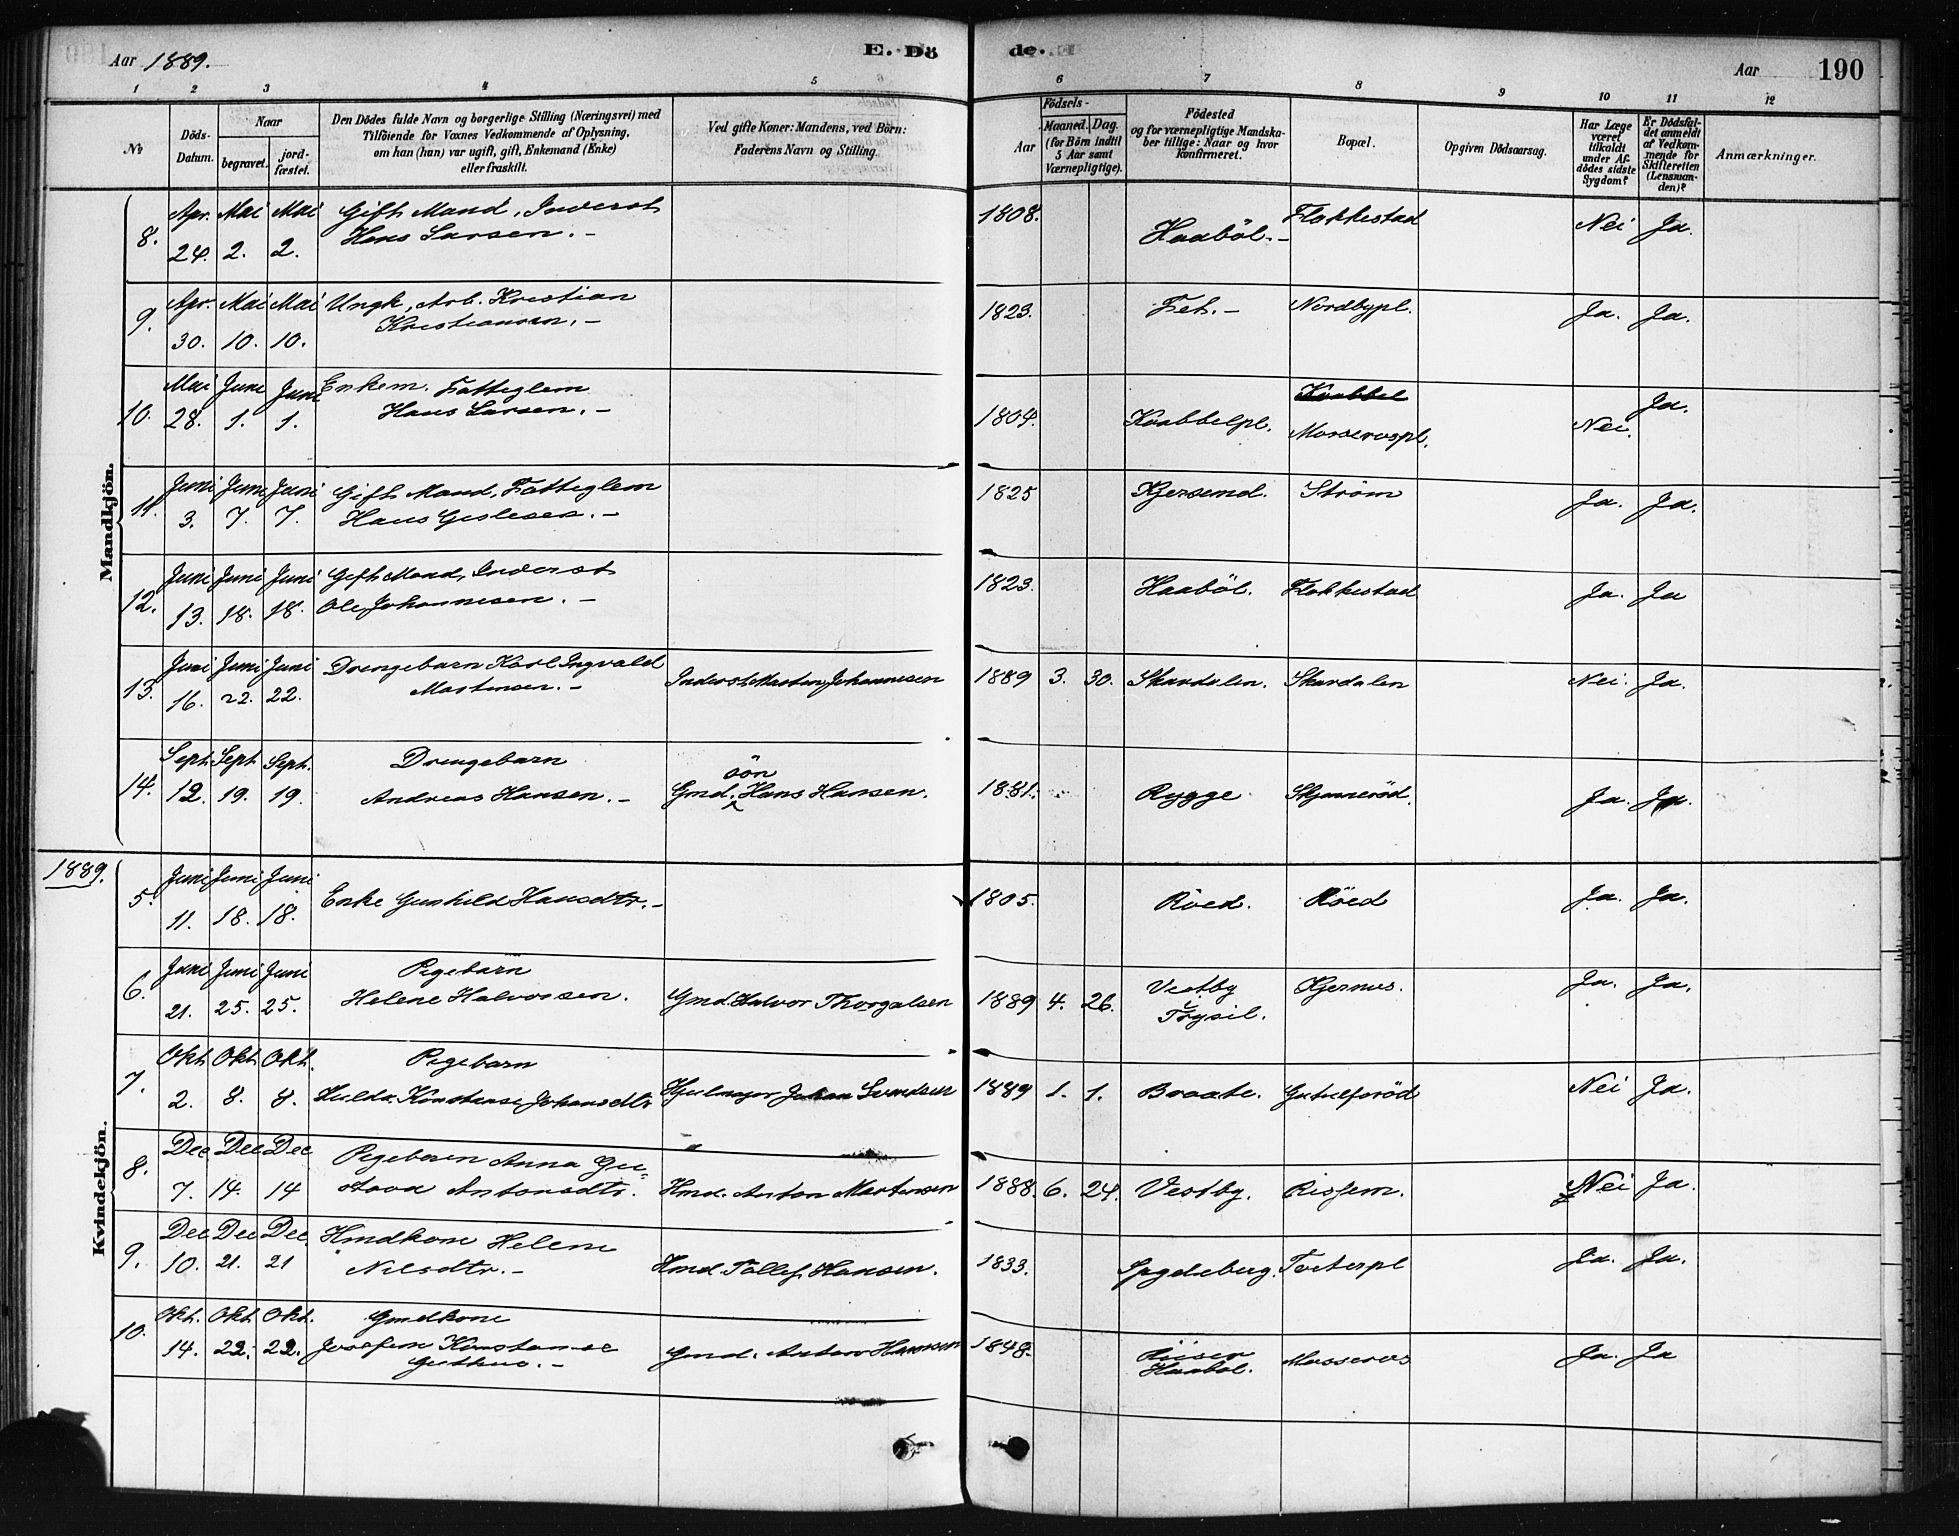 Aar 1889.
E. Dö
de.
Aar
190
1 2 3 4 5 6 7 8 9 10 11 12
No
Döds-Datum.
Naar
begravet.
jord-fæstet.
Den Dödes fulde Navn og borgerlige Stilling (Næringsvei) med
Tilföiende for Voxnes Vedkommende af Oplysning,
om han (hun) var ugift, gift, Enkemand (Enke)
eller fraskilt.
Ved gifte Koner: Mandens, ved Börn:
Faderens Navn og Stilling.
Födsels-
Aar
Maaned. Dag.
(for Börn indtil
5 Aar samt
Værnepligtige).
Födested
og for værnepligtige Mandska-
ber tillige: Naar og hvor
konfirmeret.
Bopæl.
Opgiven Dödsaarsag.
Har Læge
været
tilkaldt
under Af-
dödes sidste
Sygdom?
Er Dödsfal-
det anmeldt
af Vedkom-
mende for
Skifteretten
(Lensman-
den)?
Anmærkninger.
Mandkjön.
8. Apr. 24. Mai 2. Mai 2. Gift Mand, Inderst
Hans Larsen. – 1808. Haaböl. – Flakkestad Nei Ja.
9. Apr. 30. Mai 10. Mai 10. Ungk. Arb. Kristian
Kristiansen. – 1823. Fet. – Nordbypl. Ja. Ja.
10. Mai 28. Juni 1. Juni 1. Enkem. Fatteglem
Hans Larsen. – 1804. Krabbelpl. Krabbel
Mosserospl. Nei. Ja.
11. Juni 3. Juni 7. Juni 7. Gift Mand, Fatteglem
Hans Gulesen. – 1825 Kjersemd. Ström Ja. Ja.
12. Juni 13. Juni 18. Juni 18. Gift Mand, Inderst
Ole Johannesen. – 1823. Haaböl. Flakkestad Ja. Ja
13. Juni 16. Juni 22. Juni 22. Drengebarn Karl Ingvald
Martinsen. – Inderst Martin Johannesen 1889 3. 30. Skardalen. Skardalen Nei. Ja.
14. Sept. 12. Sept 19. Sept. 19. Drengebarn
Andreas Hansen. – Gmd. sön Hans Hansen. 1881. Rygge Skjanneröd. Ja. Ja.
1889.
Kvindekjön.
5. Juni 11. Juni 18. Juni 18. Enke Gunhild Hansdtr. – 1805. Röed. Röed Ja. Ja.
6. Juni 21. Juni 25. Juni 25. Pigebarn
Helene Halvorsen. Gmd. Halvor Thorgalsen 1889 4. 26. Vestby
Trysil. Kjernes. Ja. Ja.
7. Okt 2. Okt 8. Okt. 8. Pigebarn
Hulda Konstanse Johansdtr Hjulmager Johan Svendsen 1889 1. 1. Braate. Gutulfsröd Nei Ja.
8. Dec 7. Dec 14. Dec 14 Pigebarn Anna Gu-
stava Antonsdtr. Hmd. Anton Martinsen 1888. 6. 24. Vestby. Rissem. Nei Ja.
9. Dec 10. Dec 21. Dec. 21 Hmdkone Helene
Nilsdtr. – Hmd. Tollef Hansen. 1833. Spydeberg. Torterpl Ja. Ja.
10. Okt. 14. Okt 22. Okt. 22. Gmdkone
Josefine Konstanse
Guttuo. – Gmd. Anton Hansen 1848. Haaböl. Mosseros Ja. Ja